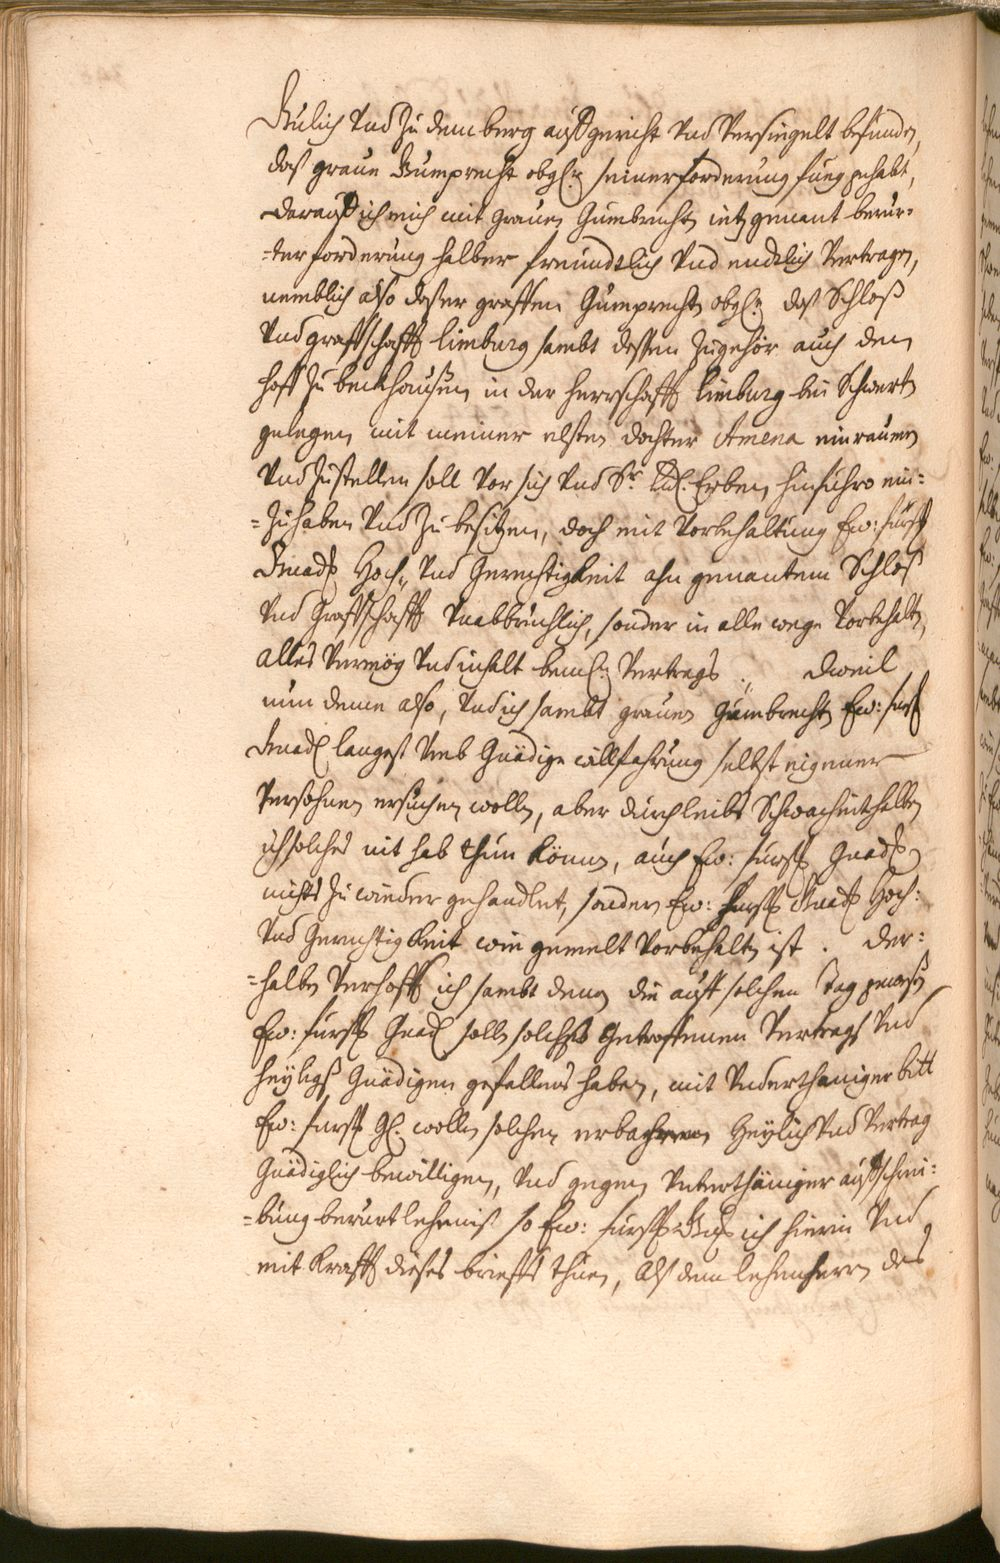 Gülich Vnd Zu dem berg auffgericht Vnd Versiegelt befunden,
daß graue Gumprecht obgl: seiner forderung fueg gehabt,
darauff ich mich mit grauen Gumbrecht ietz genant berur-
-ter forderung halber freundtlich Vnd endtlich Vertragen,
nemblich also das er graffen Gumprecht obgl: daß Schloß
Vnd graffschafft limburg sambt dessen Zugehör auch den
hoff Zu beckhausen in der herrschafft limburg bei Schwert
gelegen mit meiner elsten dochter Amena einraumen
Vnd Zustellen soll Vor sich Vnd Sr. Ld. Erben, hinführo ein-
-Zuhaben Vnd Zu besitzen, doch mit Vorbehaltung Ew: fürstl
Gnad Hoch: Vnd Gerechtigkeit ahn genantem Schloß
Vnd Graffschafft Vnabbrüchlich, sonder in alle wege Vorbehalt,
alles Vermög Vnd inhalt beml: Vertrags :, dweil
nun deme also, Vnd ich sambt grauen Gumbrecht Ew: fürstl
Gnad langest Vmb Gnädige willfahrung selbst eigener
Persohnen ersuchen wollen, aber durch leibs Schwacheit halben
ich solches nit hab thun können, auch Ew: fürstl Gnad
nichts Zu wieder gehandlet, sonder Ew: fürstl Gnad Hoch:
Vnd Gerechtigkeit wie gemelt Vorbehalten ist. der:
-halben Verhoff ich sambt denen die auff solchen Tag gewesen
Ew: fürstl Gnad sollen solches Getroffenen Vertrags Vnd
heyligs Gnädigen gefallens haben, mit Vnderthaniger bitt
Ew: fürstl G. wollen solchen erbahren Heylich Vnd Vertrag
Gnädiglich bewilligen, Vnd gegen Vnterthäniger auffschrei-
-bung berurt lehenis so Ew: fürstl Gnad ich hierin Vnd
mit Krafft dieses brieffs thuen, Als dem lehenherrn des